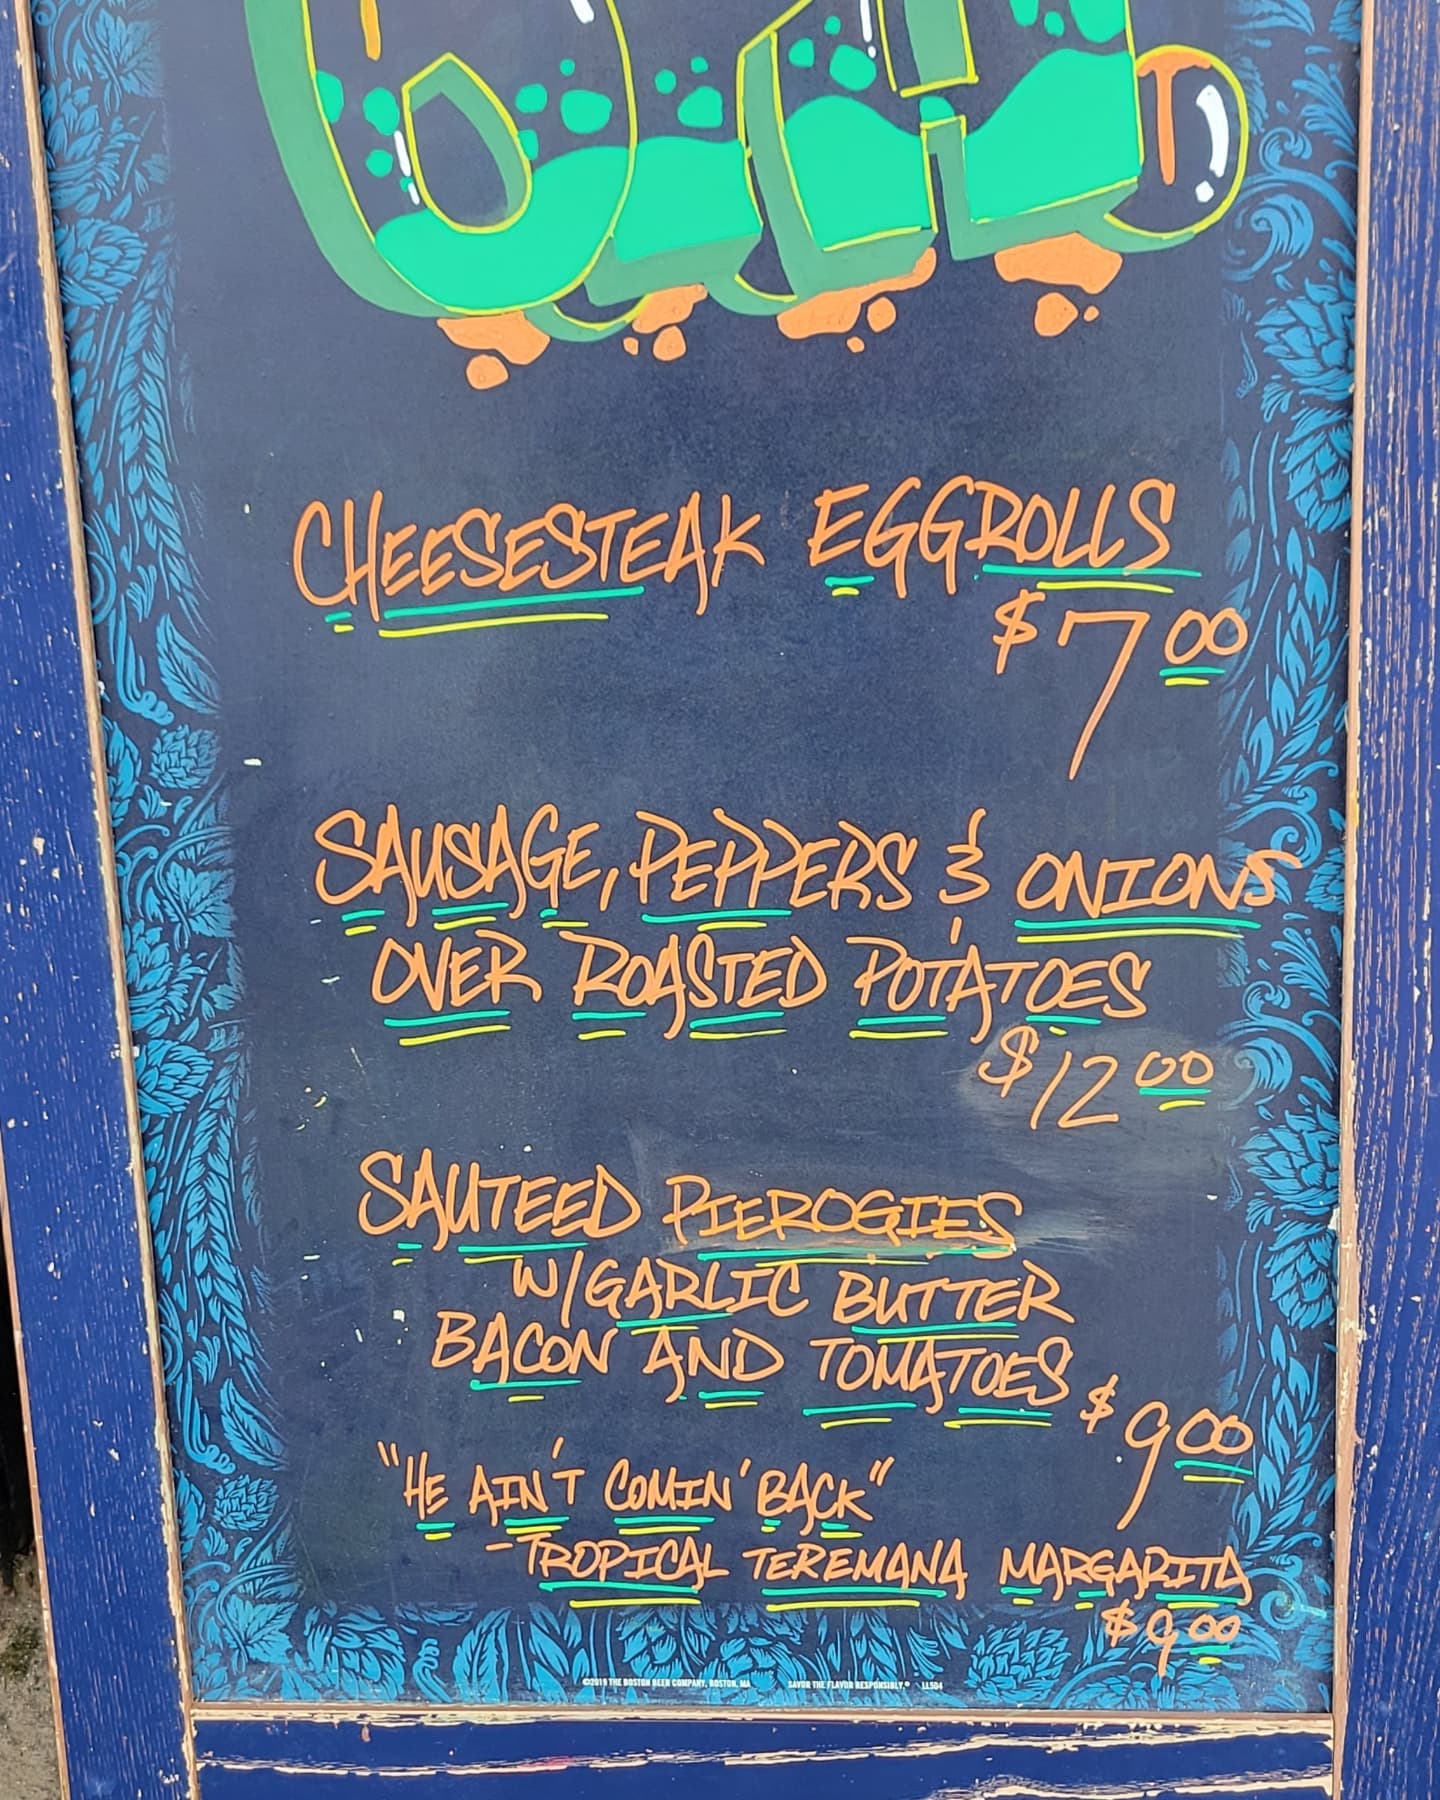 CHEESESTEAK EGGROLLS
$7.00
SAUSAGE, PEPPERS & ONIONS
OVER ROASTED POTATOES
$12.00
SAUTEED PIEROGIES
W/GARLIC BUTTER
BACON AND TOMATOES
$9.00
"HE AIN'T COMIN' BACK"
-TROPICAL TEREMANA MARGARITA
$9.00
©2019 THE BOSTON BEER COMPANY, BOSTON, MA SAVOR THE FLAVOR RESPONSIBLY.® LL504